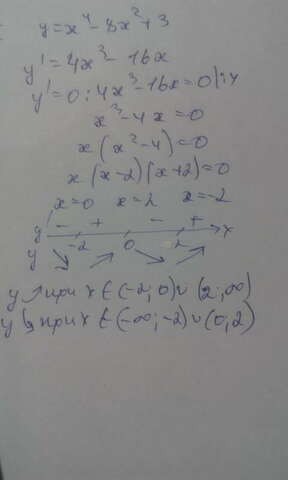 y = x⁴ - 8x² + 3
y' = 4x³ - 16x
y' = 0 : 4x³ - 16x = 0 | : 4
x³ - 4x = 0
x(x² - 4) = 0
x(x-2)(x+2) = 0
x=0 x=2 x=-2
y' - + - + x
y -2 0 2
y ↗ при x ∈ (-2; 0) ∪ (2; ∞)
y ↘ при x ∈ (-∞; -2) ∪ (0; 2)